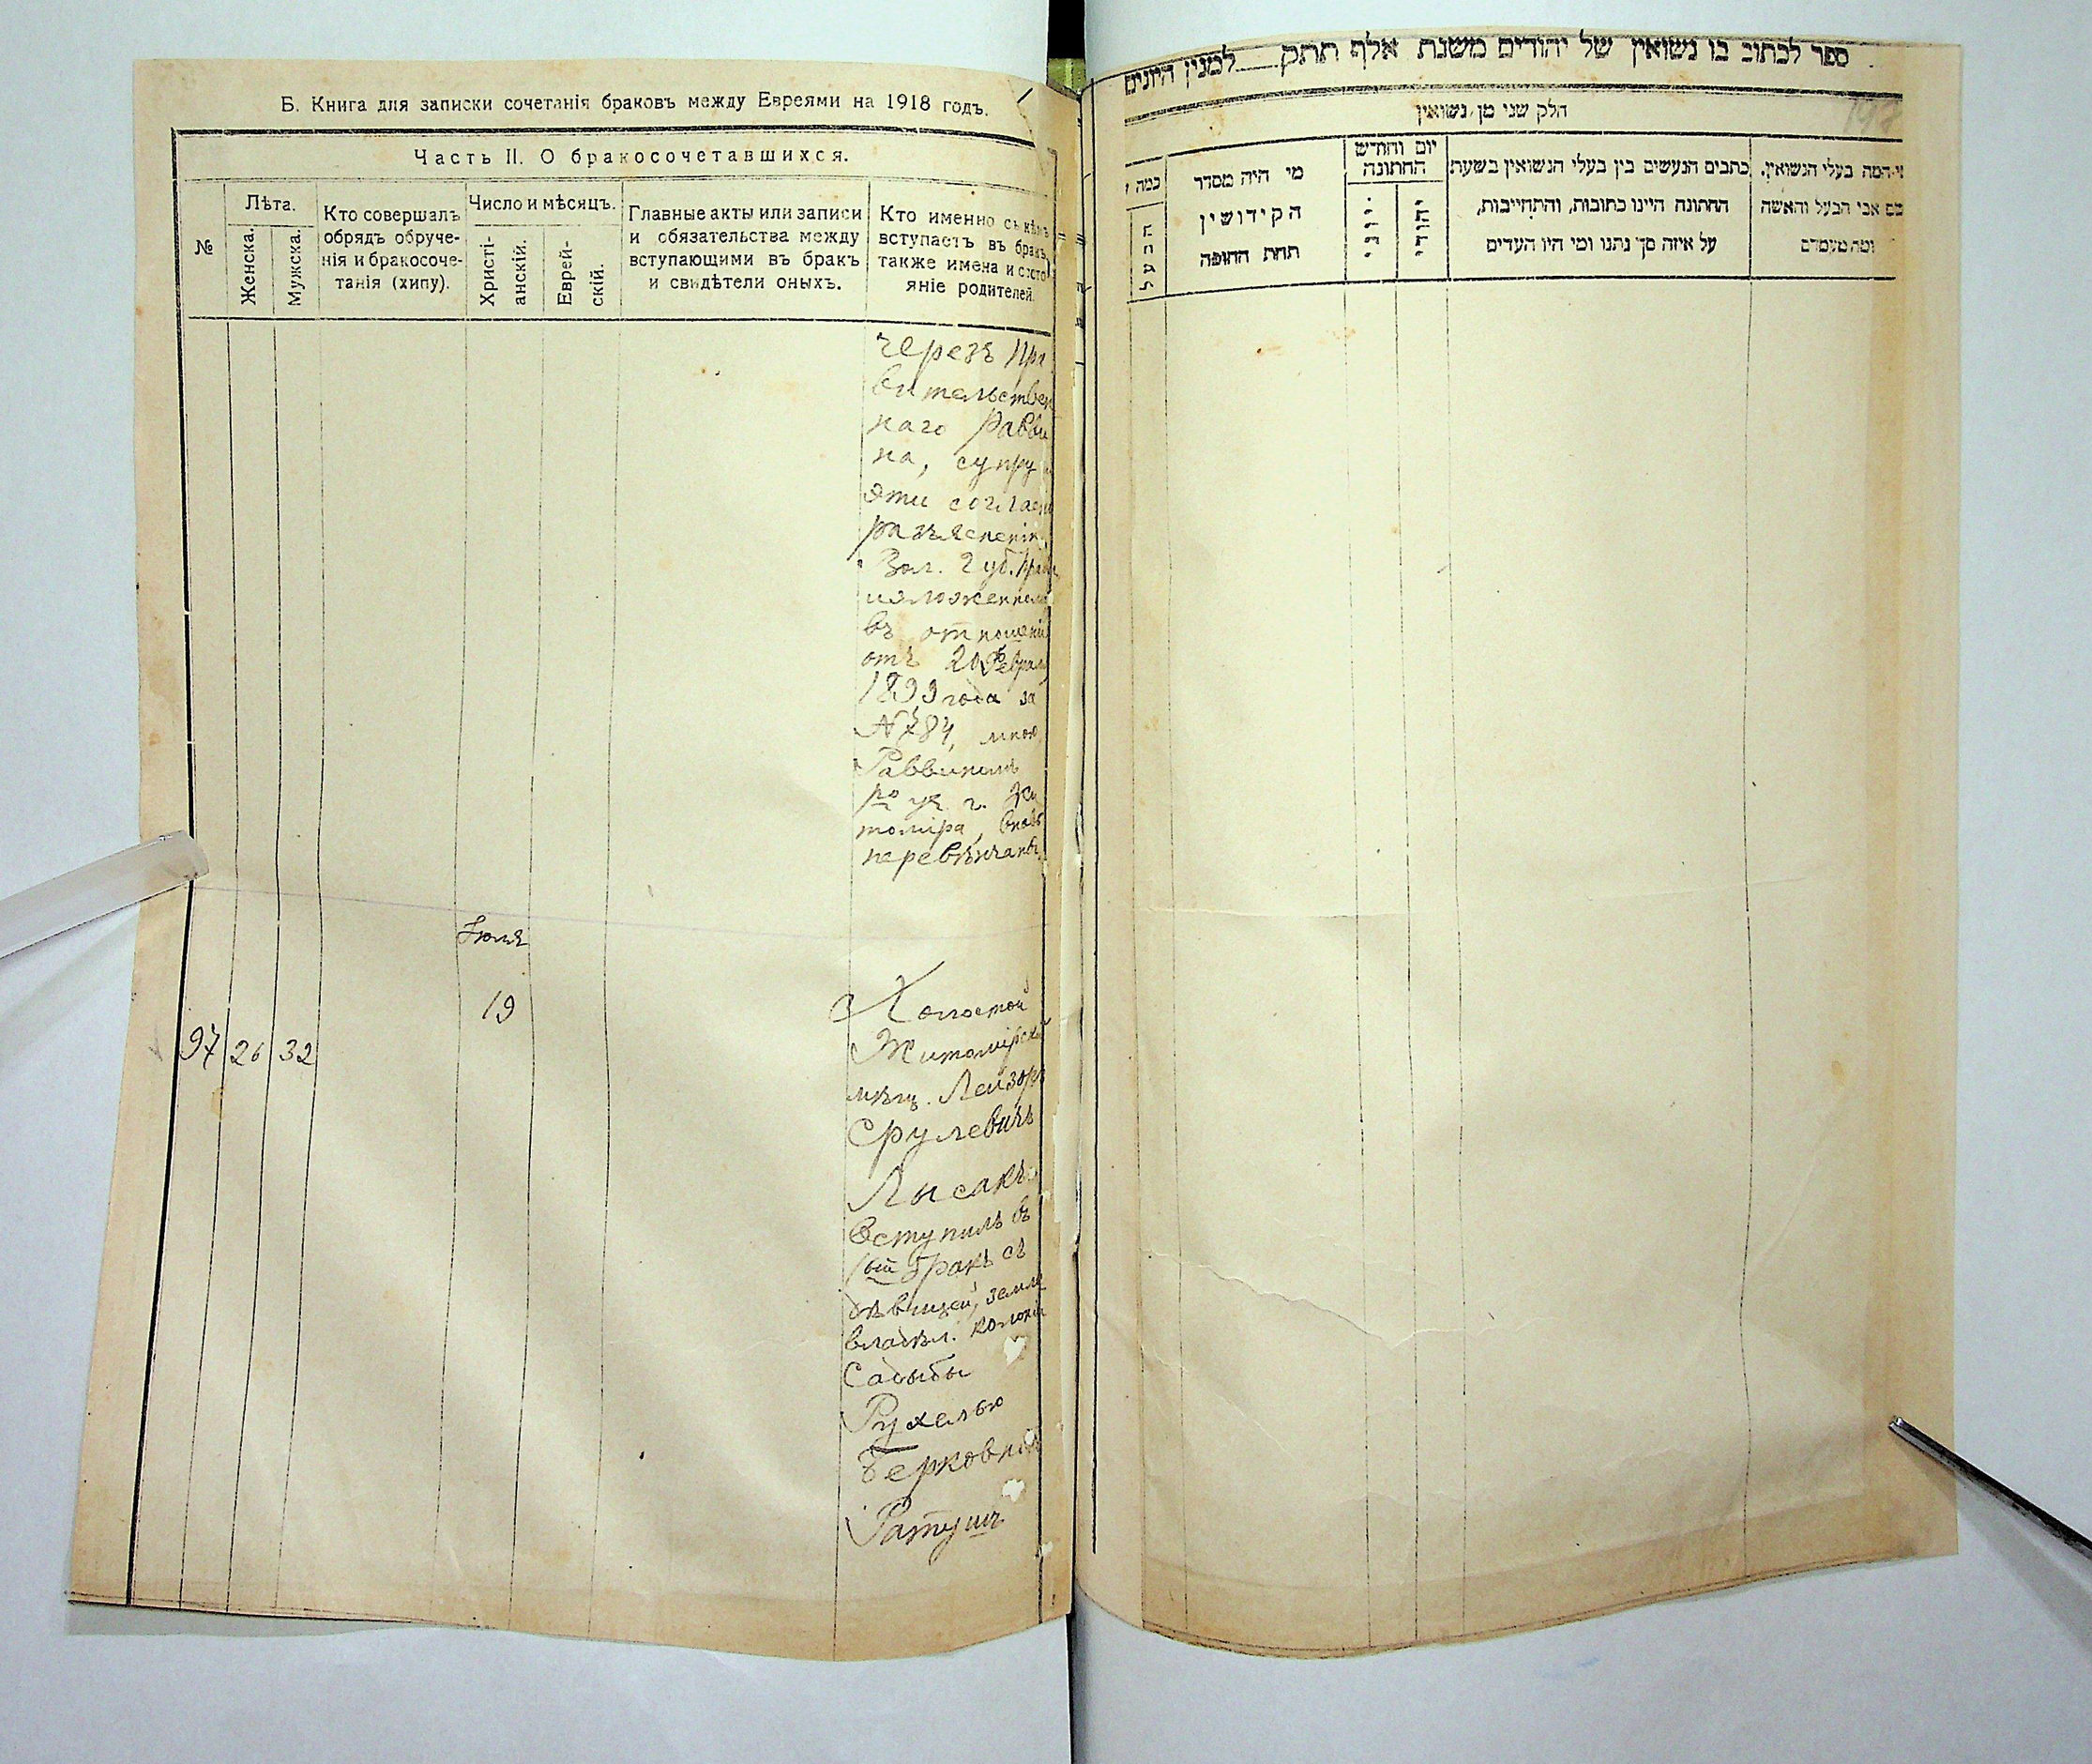 Б. Книга для записки сочетанія браковъ между Евреями на 1918 годъ.
Часть II. О бракосочетавшихся.
№
Лѣта.
Женска.
Мужска.
Кто совершалъ
обрядъ обруче-
нія и бракосоче-
танія (хипу).
Число и мѣсяцъ.
Христі-
анскій.
Еврей-
скій.
Главные акты или записи
и обязательства между
вступающими въ бракъ
и свидѣтели оныхъ.
Кто именно съ кѣмъ
вступаетъ въ бракъ,
также имена и состо-
яніе родителей.
черезъ Пра
вительствен
наго Равви
на, супру
эти согласно
разъясненію
Вол. Губ. Прав
изложенному
въ отношеніи
отъ 20 Февраля
1899 года за
№ 784, мною
Раввиномъ
1го уч. г. Жи
томіра, вновь
перевѣнчаны
Іюля
19
97 26 32
Холостой
Житомірскій
мѣщ. Лейзоръ
Срулевичъ
Лысакъ
вступилъ въ
1ый бракъ съ
дѣвицей, земле
владѣл. колоніи
Садыбы
Рухелью
Берковной
Ратушъ
ספר לכתוב בו נשואין של יהודים משנת אלף תתק למנין היונים
חלק שני מן נשואין
כמה
הבעל
מי היה מסדר
הקידושין
תחת החופה
יום וחודש
החתונה
יוני
יהודי
כתבים הנעשים בין בעלי הנשואין בשעת
החתונה היינו כתובות, והתחייבות,
על איזה סך נתנו ומי היו העדים
המה בעלי הנשואין.
אבי הבעל והאשה
ומה מעמדם